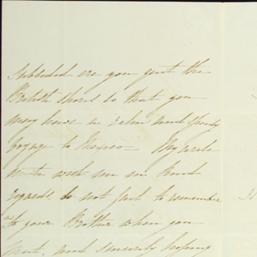 subsided ere you quit the
British shores so that you
may have a calm and speedy
voyage to Mexico – My wife
unites with me in kind
regards, do not fail to remember
to your Brother when you
and sincerely hoping